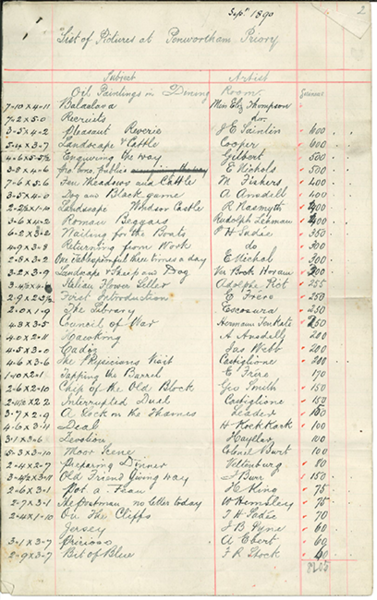 Sept 1890
2
List of Pictures at Penwortham Priory
Subject Artist
Oil Paintings in Dining Room. Guineas
7-10 x 4-11 Balaclava Miss Eliz Thompson
7-2 x 5-0 Recruits do
3-5 x 4-2 Pleasant Reverie J E Saintin 600
5-4 x 3-7 Landscape & Cattle Cooper 600
4-6 x 5-5½ Enquiring the way Gilbert 500
3-8 x 4-6 E Nichols 500
7-6 x 5-6 Fen Meadows and Cattle 400
3-5 x 4-0 Dog and Black game A Ansdell 400
Landscape Windsor Castle P Nasmyth 400
3-6 x 4-2 Roman Beggars Rudolph Lehmann 400
6-2 x 3-2 Waiting for the Boats T H Sadee 350
4-9 x 3-8 Returning from Work do 300
2-8 x 3-2 three times a day E Nichol 300
3-2 x 3-9 Landscape Sheep and Dog Van Bock Hoven 300
Italian Flower Seller Adolphe 255
First Introduction E Frere 250
2-0 x 1-9 The Library Escosura 250
4-3 x 3-5 Council of War Hermann Tenkate 250
4-0 x 2-11 Hawking A Ansdell 200
4-5 x 3-0 Cader Jas Webb 200
4-6 x 3-6 The Suspicious Visit Castiglione 200
1-10 x 2-1 Tapping the Barrel E Frere 170
2-6 x 2-10 Chip of the Old Block Geo Smith 150
Interrupted Duel Castiglione 150
3-7 x 2-9 A Lock on the Thames Leader 100
4-6 x 3-4 Deal H Koekkoek 100
3-1 x 3-6 Devotion Hayllar 100
5-3 x 3-10 Moor Scene Colonel Burt 100
2-4 x 2-7 Preparing Dinner 80
Old Friend Giving way J Burr 150
2-6 x 3-1 Pot a Beau H King 75
2-7 x 3-1 The Postman no letter today W Hemsley 75
2-4 x 1-10 On The Cliffs T H Sadee 70
Jersey J B Pyne 60
3-1 x 3-7 A Ebert 60
2-9 x 3-7 Bit of Blue F R Stock 40